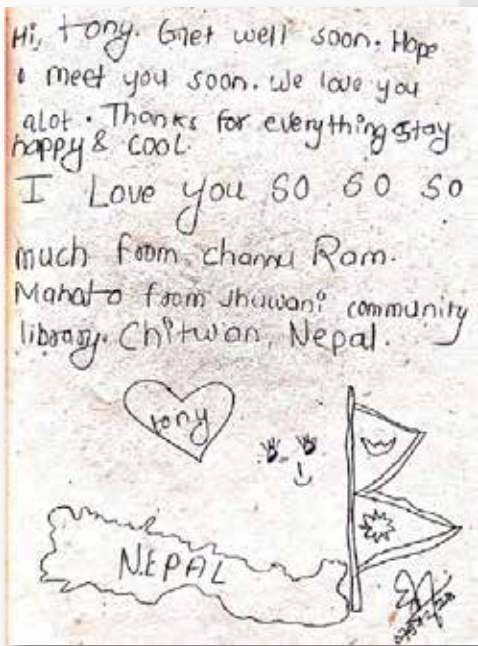 Hi, tony. Get well soon. Hope
I meet you soon. We love you
alot. Thanks for everything stay
happy & cool.
I Love you so so so
much from channu Ram.
Mahato from Jhuwani community
library. Chitwan, Nepal.
tony
NEPAL